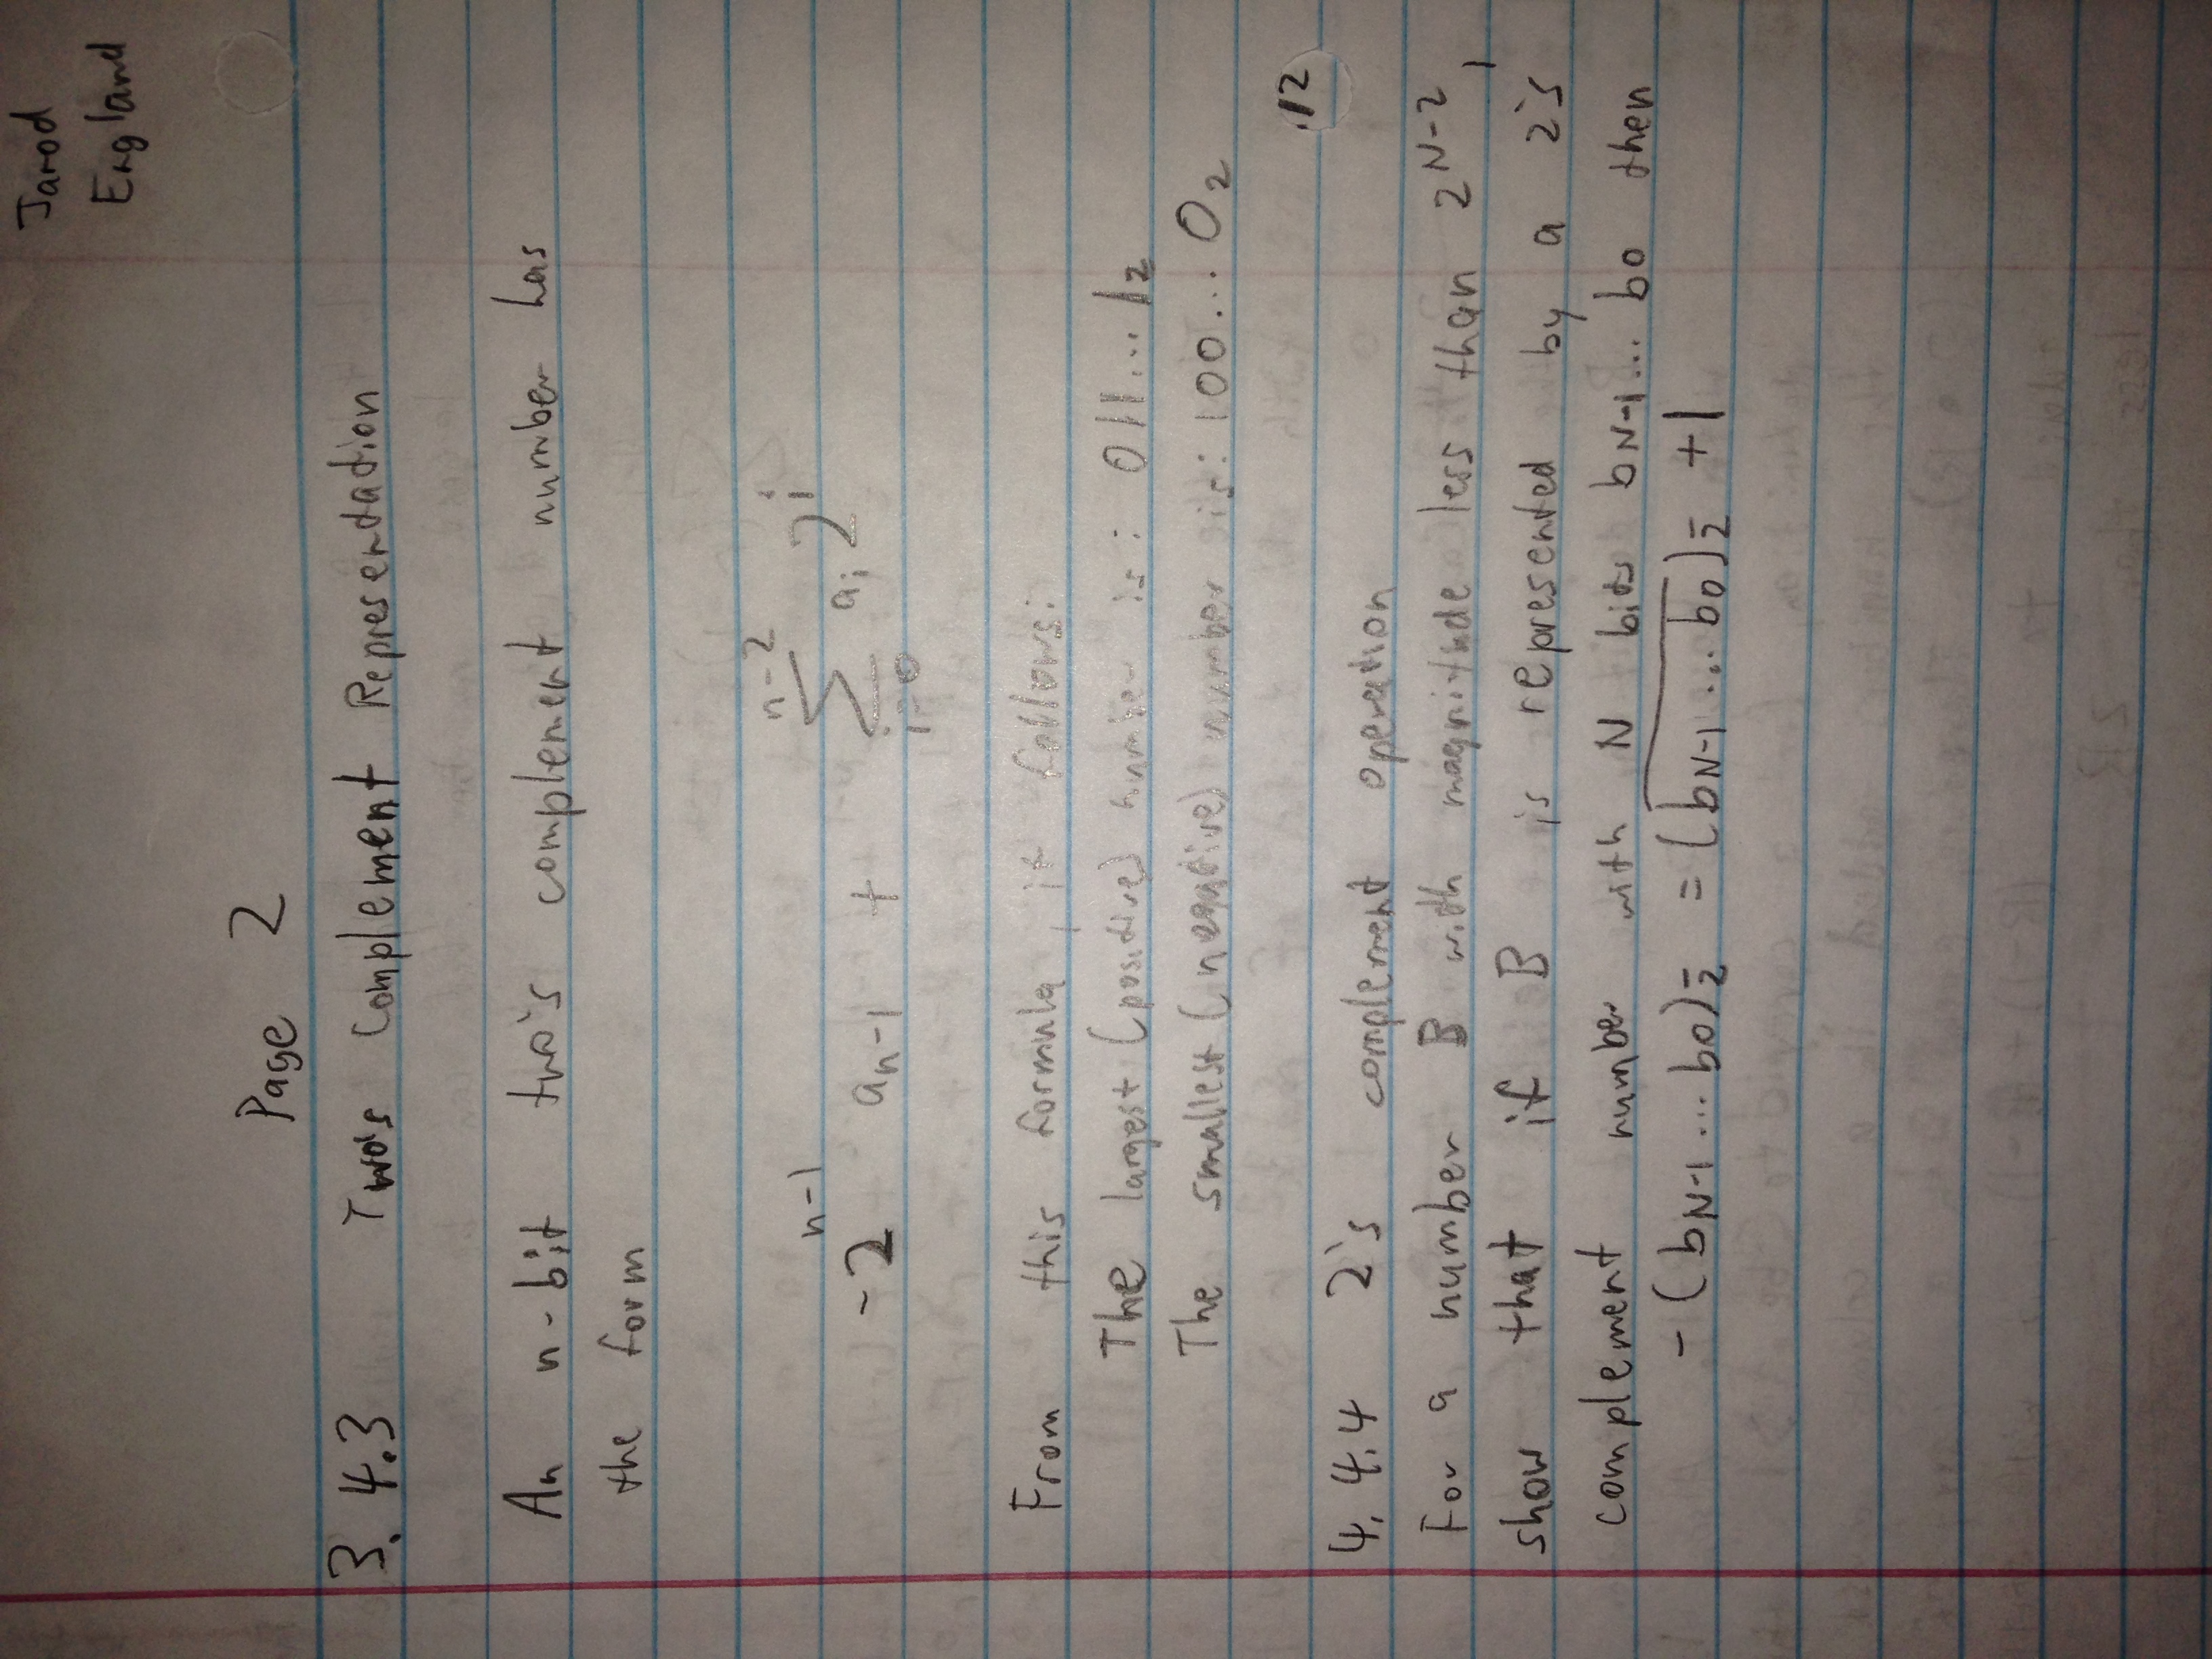 Jarod
England
Page 2
3. 4.3 Two's Complement Representation
An n-bit two's complement number has
the form
-2^{n-1} a_{n-1} + \sum_{i=0}^{n-2} a_i 2^i
From this formula, it follows:
The largest (positive) number is: 011...1₂
The smallest (negative) number is: 100...0₂
.12
4. 4.4 2's complement operation
For a number B with magnitude less than 2^{N-2},
show that if B is represented by a 2's
complement number with N bits b_{N-1}... b0 then
-(b_{N-1}...b0)_{\bar{2}} = (\overline{b_{N-1}...b0})_{\bar{2}} +1